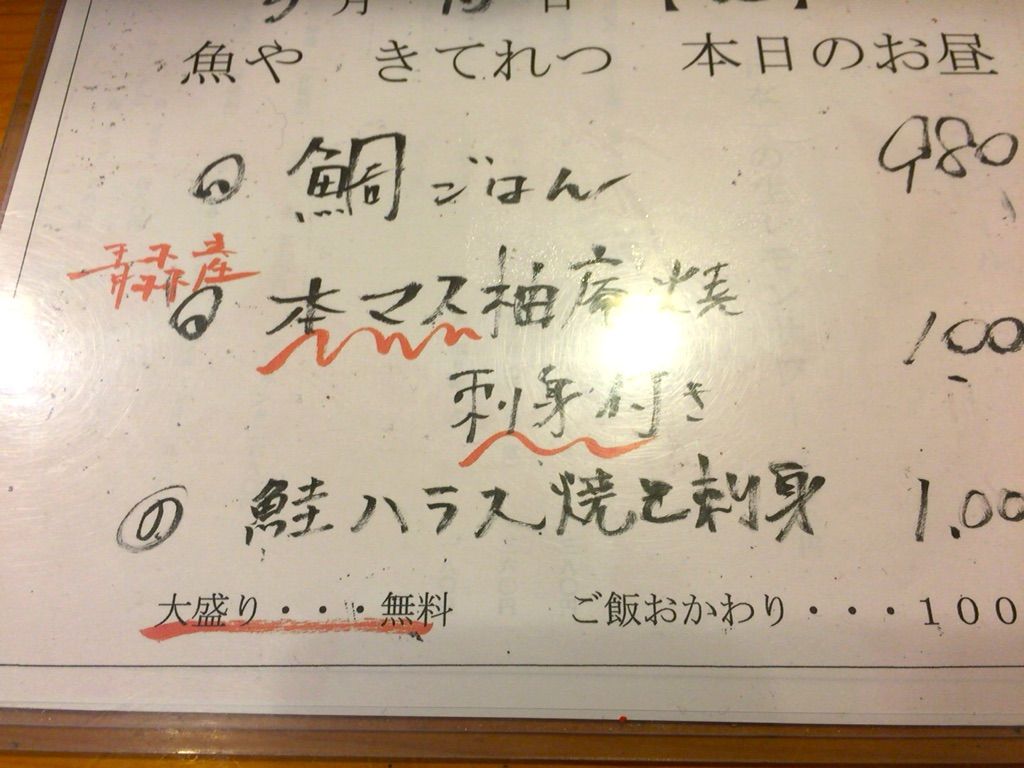 月 日
魚や きてれつ 本日のお昼
鯛ごはん 980
青森産
本マス柚庵焼 100
刺身付き
鮭ハラス焼と刺身 1.00
大盛り・・・無料 ご飯おかわり・・・１００